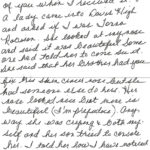 of you when I received it
a lady come into Davis High
and asked if I was Teresa
. She looked at my nose
and said it was beautiful. Some
one had told her to come see it
was said that her brother had you
fix his skin cancer nose but she
had someone else do hers. Her
nose looked ok but mine is
beautiful (I'm prejudice). Any
way she was crying & both my
self and her son tried to console
her. I told her how I have noticed